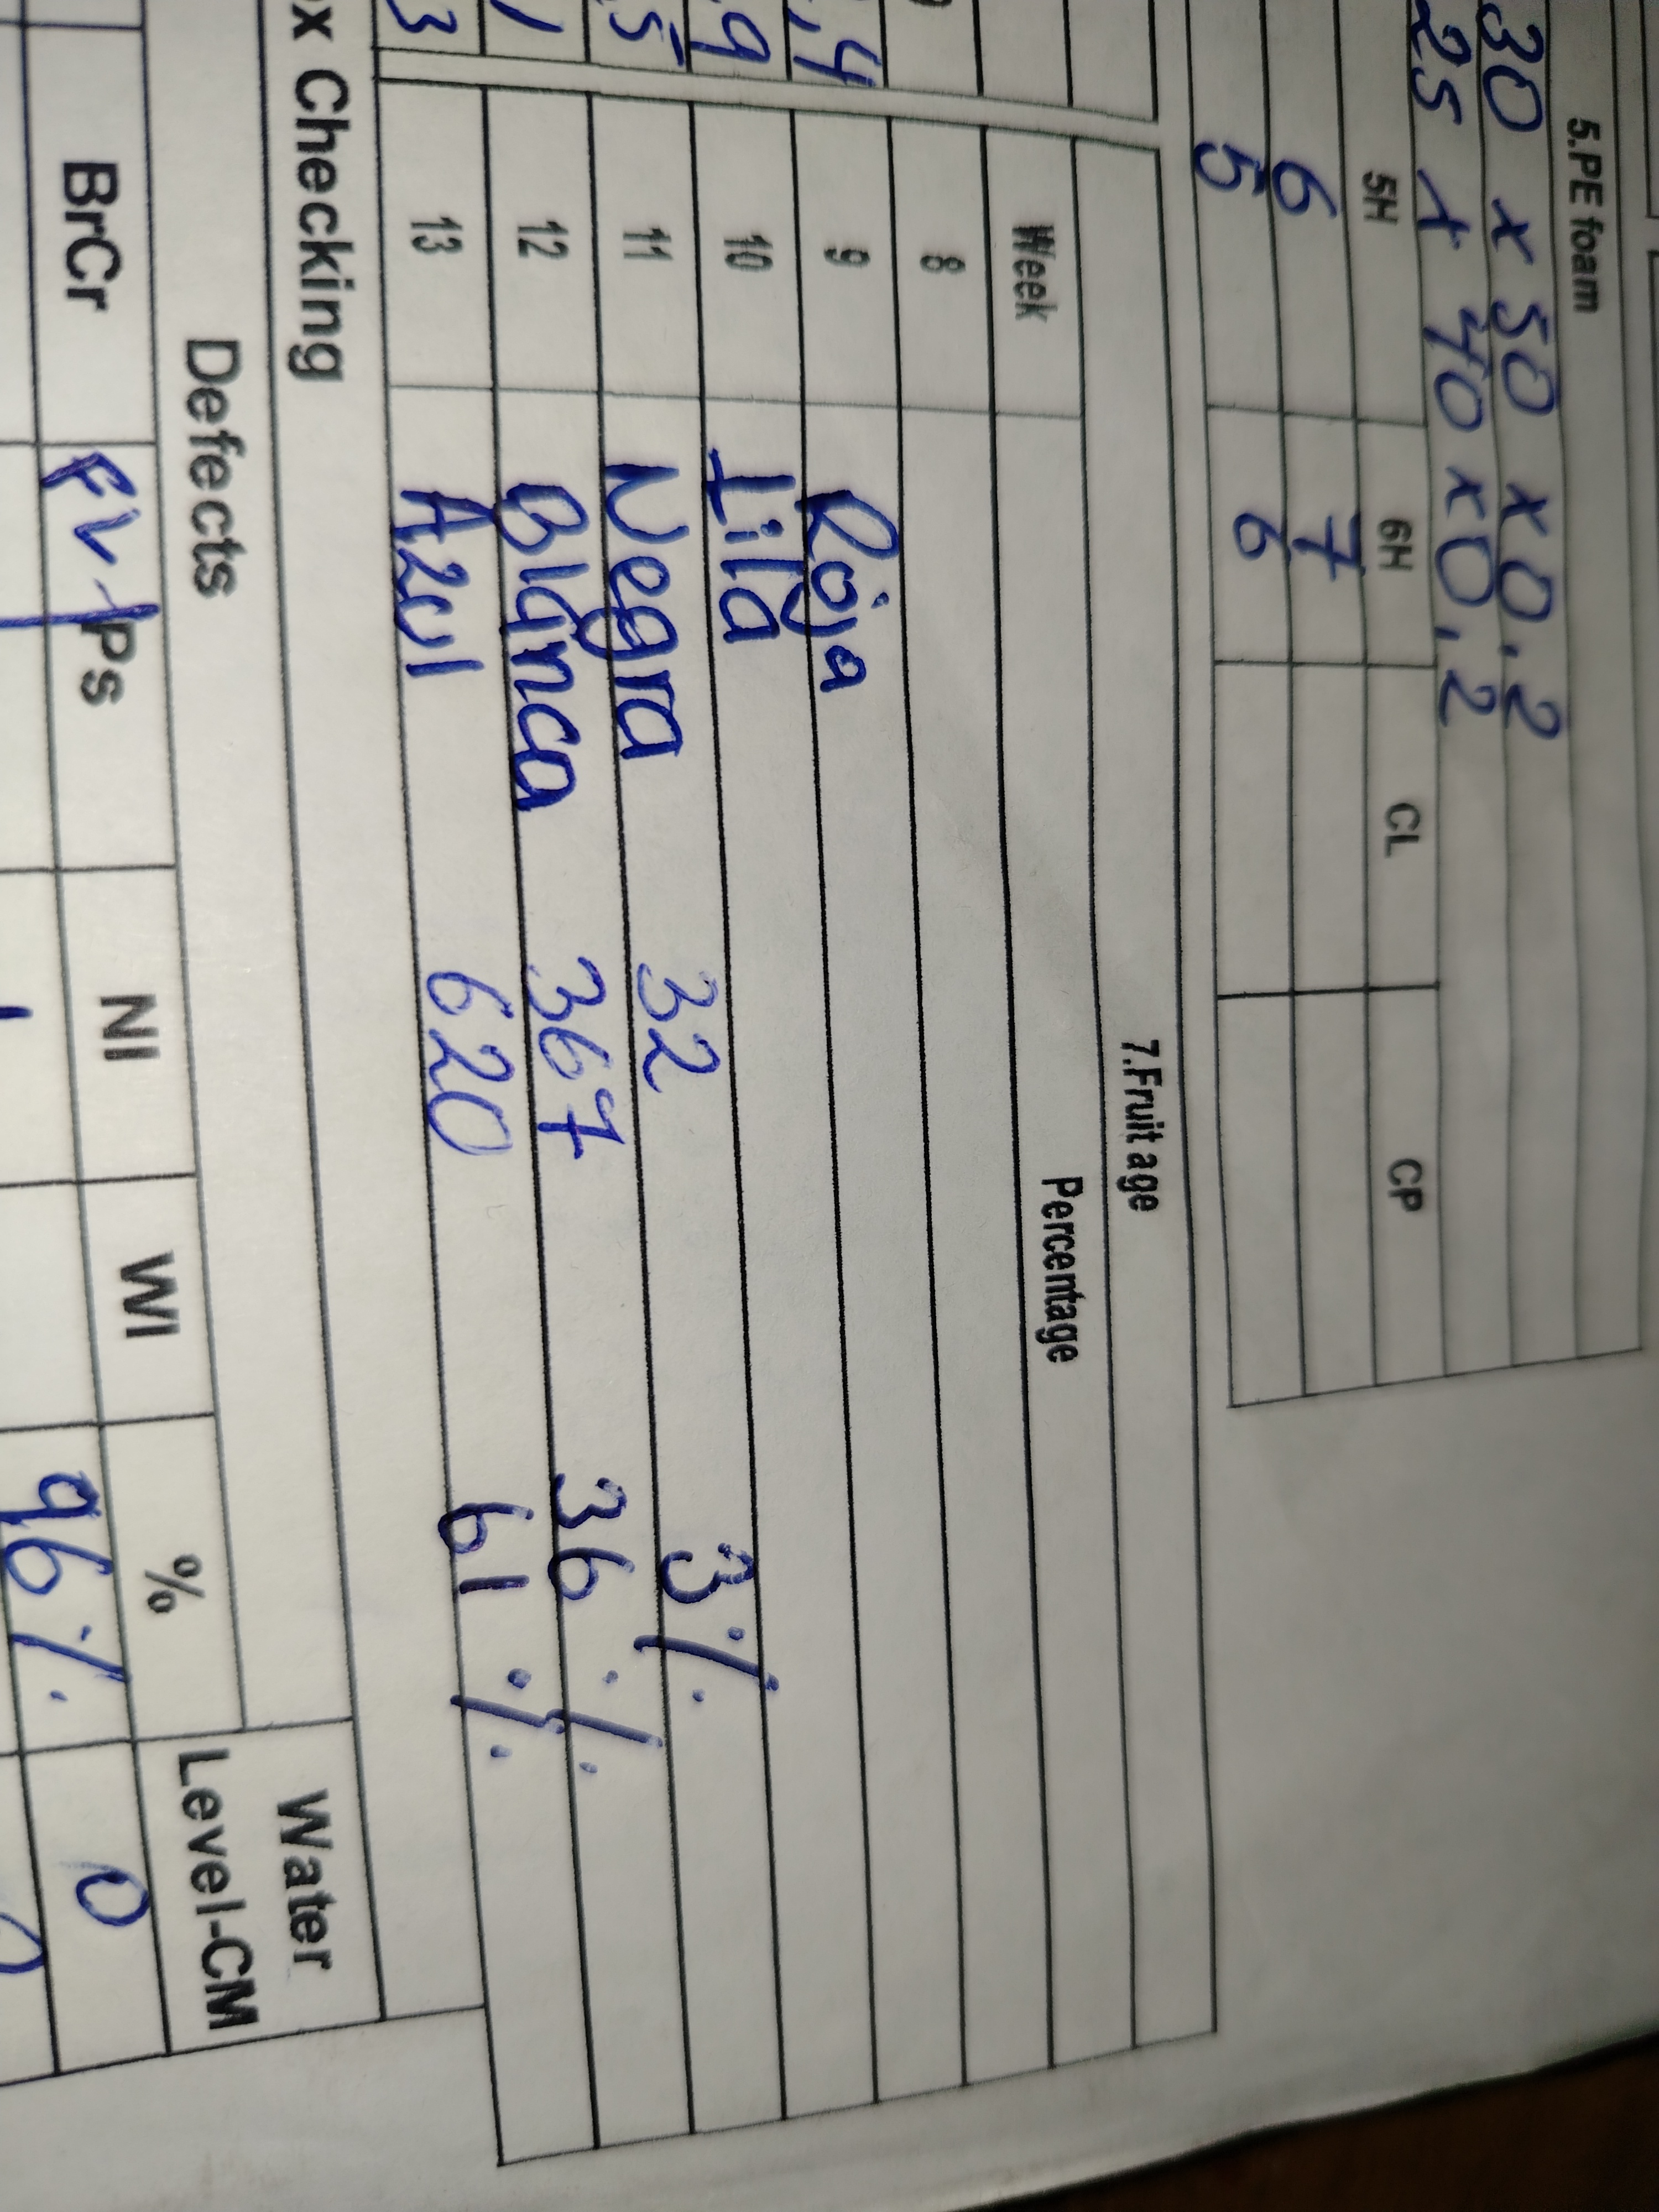 5.PE foam
30 x 50 x 0.2
25 x 40 x 0,2
5H 6H CL CP
6 7
5 6
7.Fruit age
Week Percentage
8
,4 9 Roja
,9 10 Lila
,5 11 Negra 32 3%
1 12 Blanca 367 36%
3 13 Azul 620 61%
x Checking
Defects Water Level-CM
BrCr Ps NI WI %
96% 0